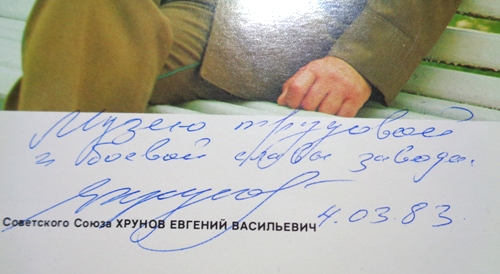 Музею трудовой
и боевой славы завода.
Хрунов
Советского Союза ХРУНОВ ЕВГЕНИЙ ВАСИЛЬЕВИЧ
4.03.83.